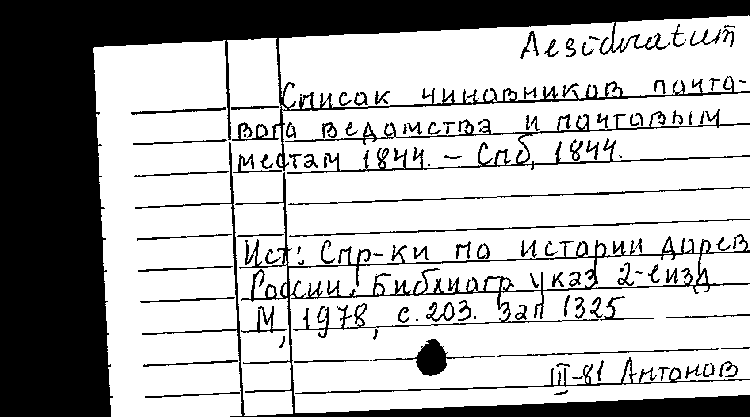 Desidɩratum
Список чиновников почто-
вого ведомства и почтовым
местам 1844. – Спб, 1844.
Ист: Спр-ки по истории дорев
России. Библиогр указ 2-е изд
М, 1978, с. 203. Зап 1325
III-81 Антонов